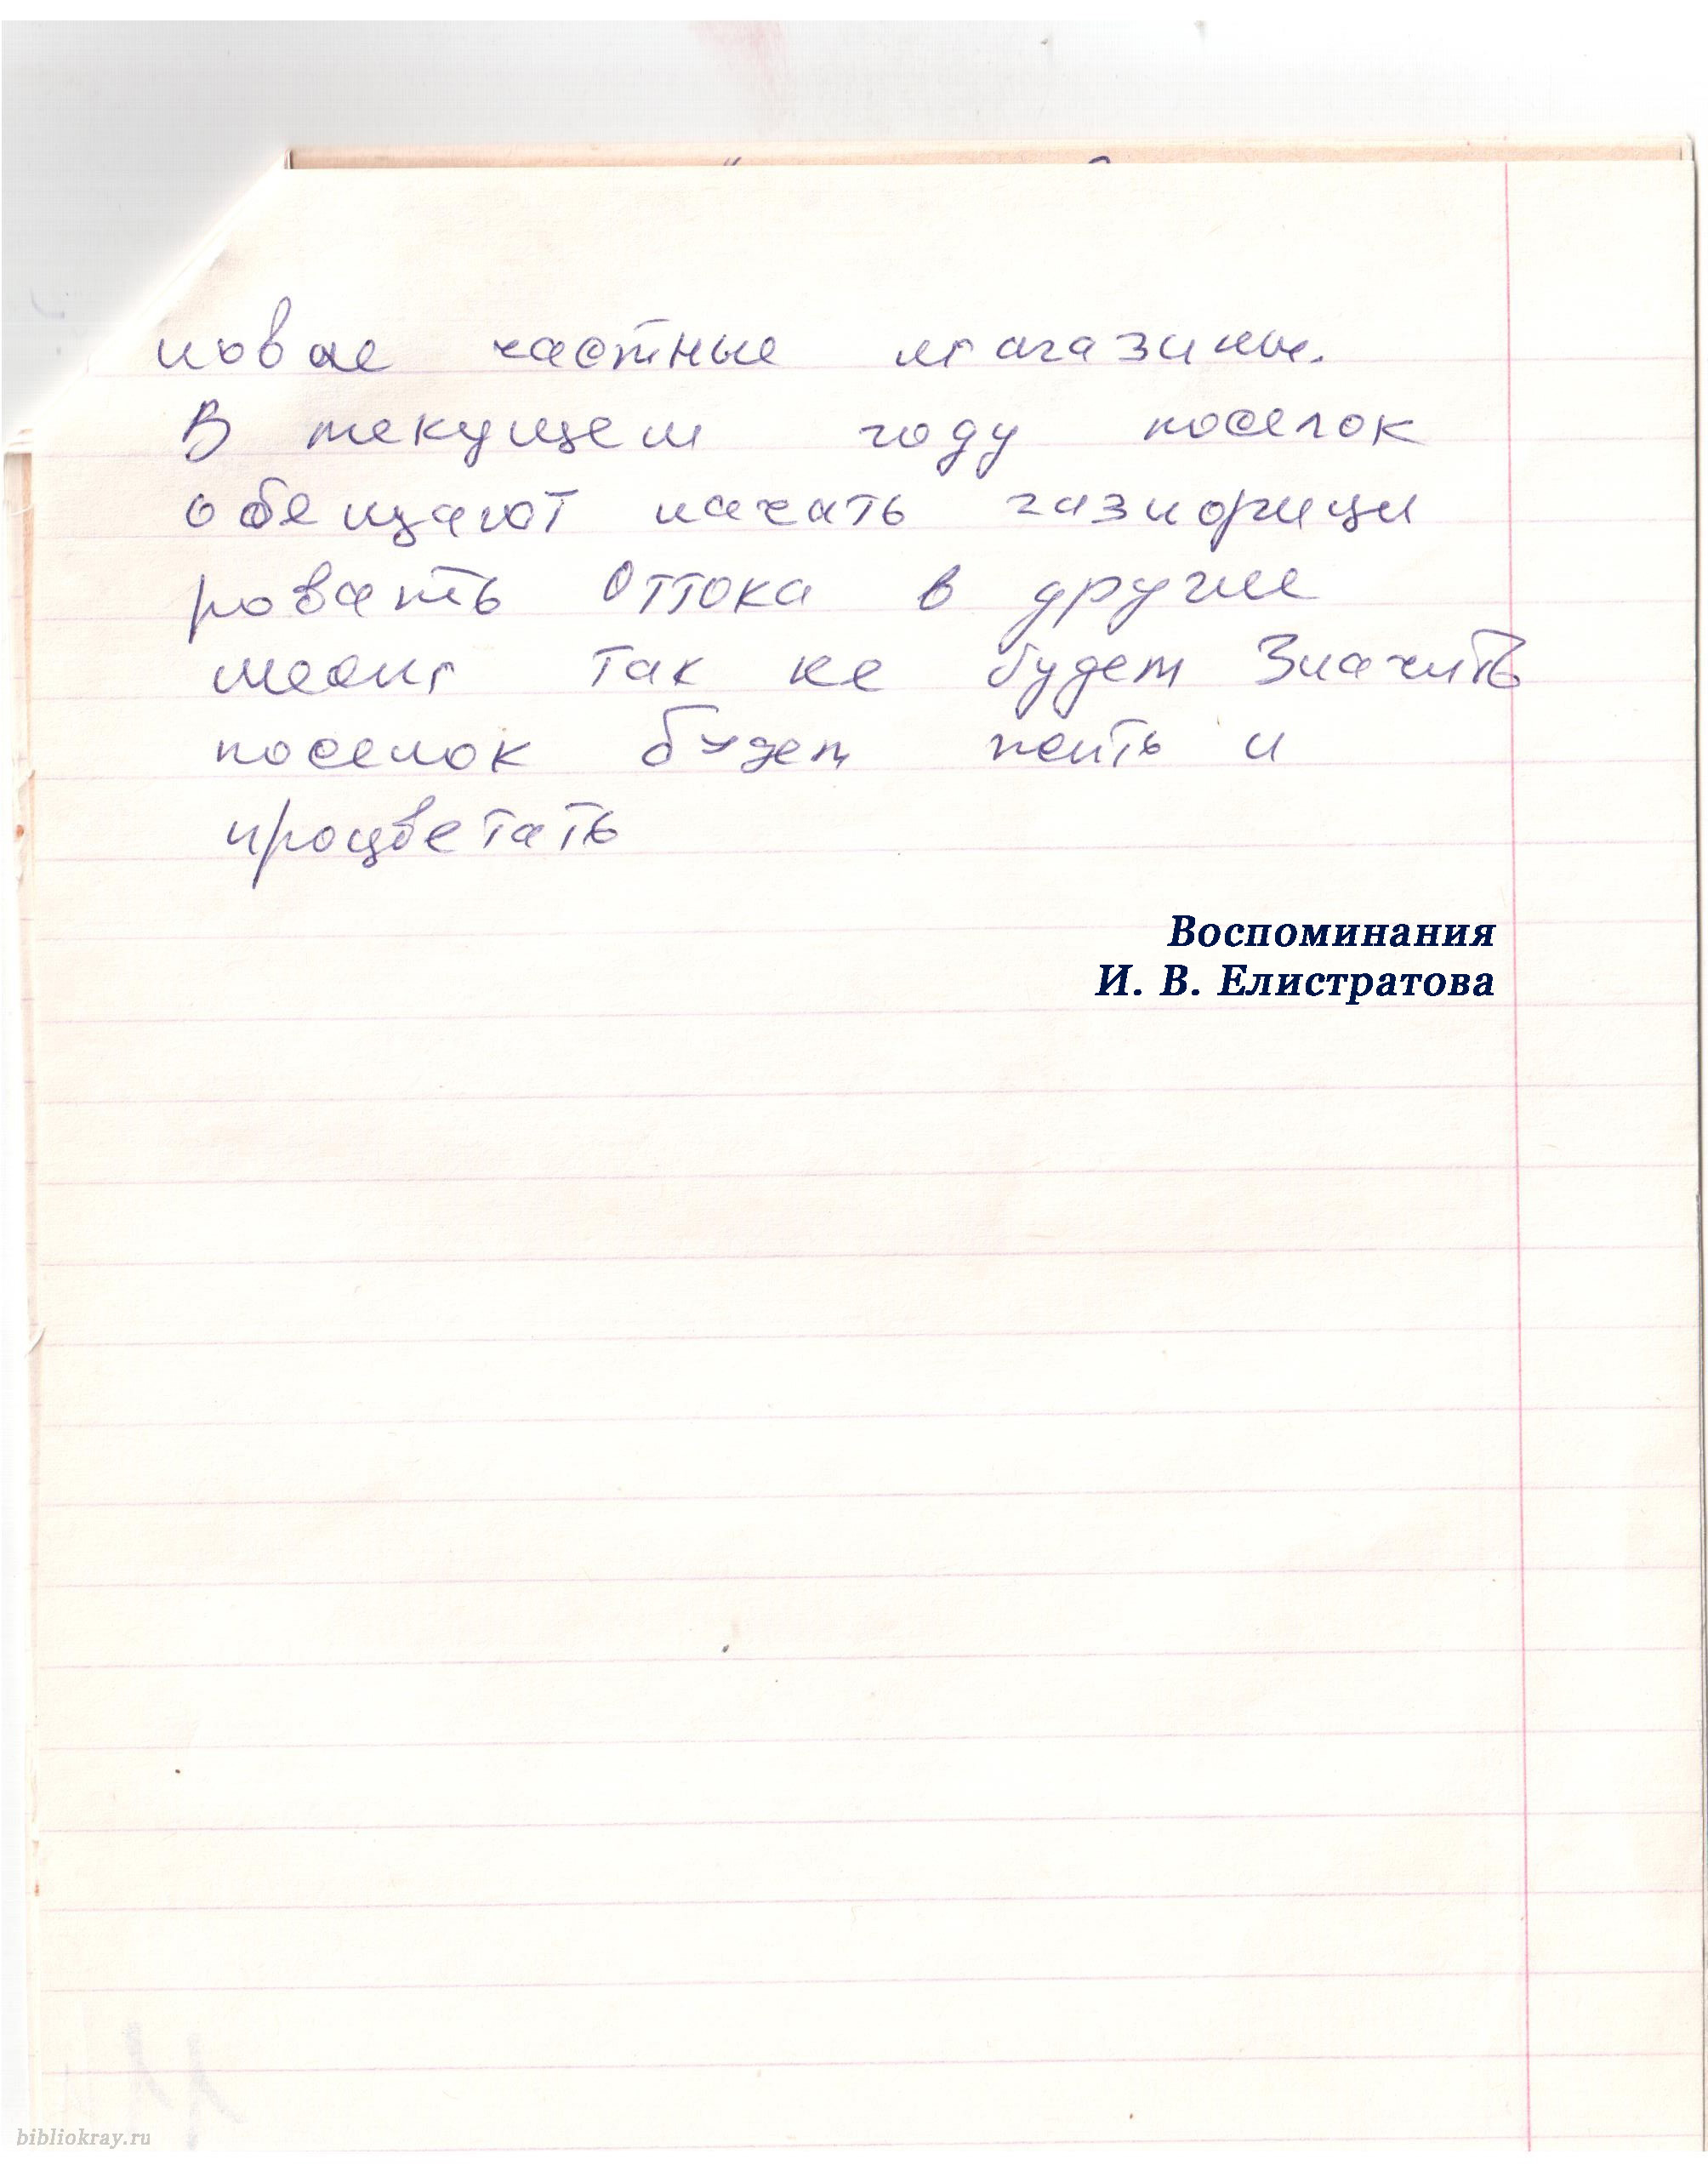 новые частные магазины.
В текущем году поселок
обещают начать газифици
ровать Оттока в другие
места так не будет Значить
поселок будет жить и
процветать
Воспоминания
И. В. Елистратова
bibliokray.ru